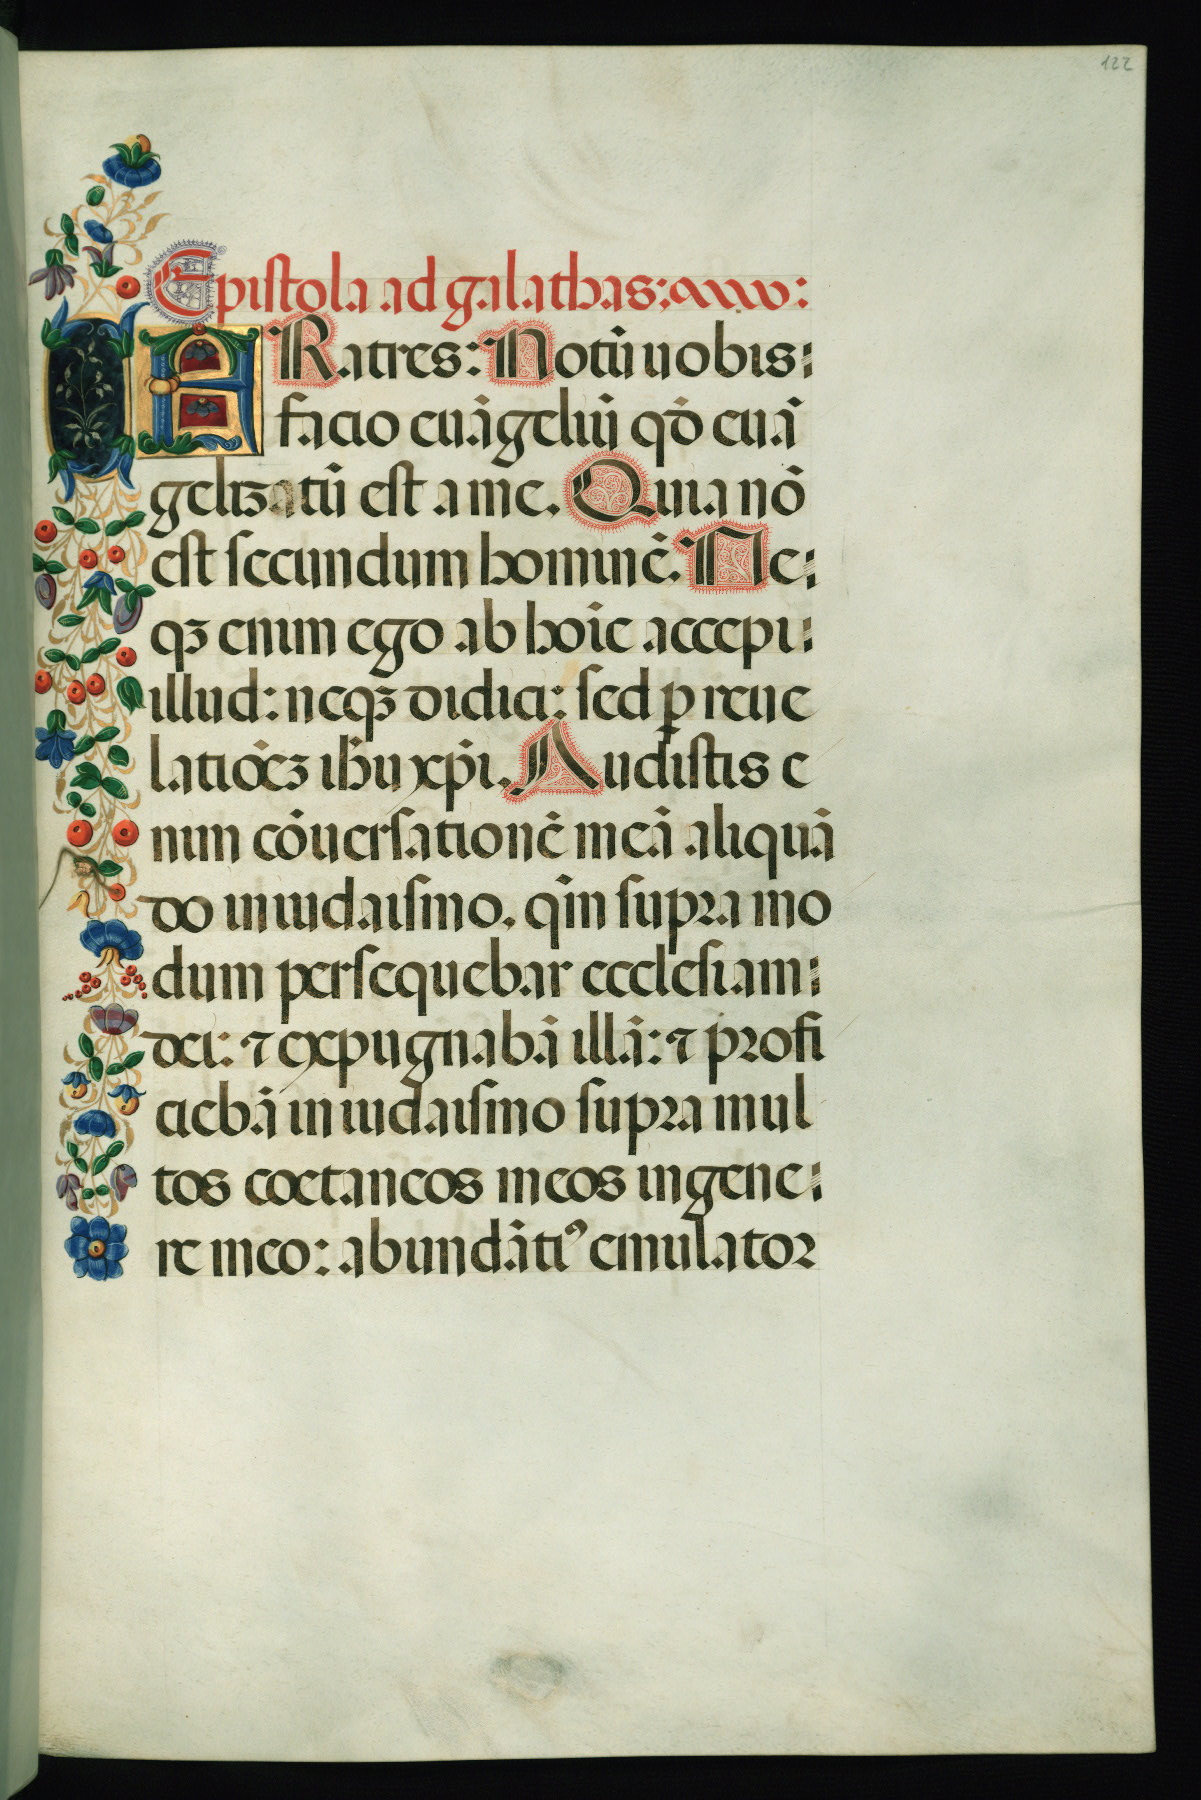 122
Epistola ad galathas:
FRatres: Notū uobis:
facio euāgeliū qđ euā
gelizatū est a me. Quia nō
est secundum hominē. Ne:
qꝫ enim ego ab hoīe accepi:
illud: neqꝫ didici: sed ꝑ reue
latiōeꝫ ihū xp̄i. Audistis e
nim cōuersationē meā aliquā
do in iudaismo. qm̄ supra mo
dum persequebar ecclesiam:
dei: ⁊ expugnabā illā: ⁊ profi
ciebā in iudaismo supra mul
tos coetaneos meos in gene:
re meo: abundātiꝰ emulator